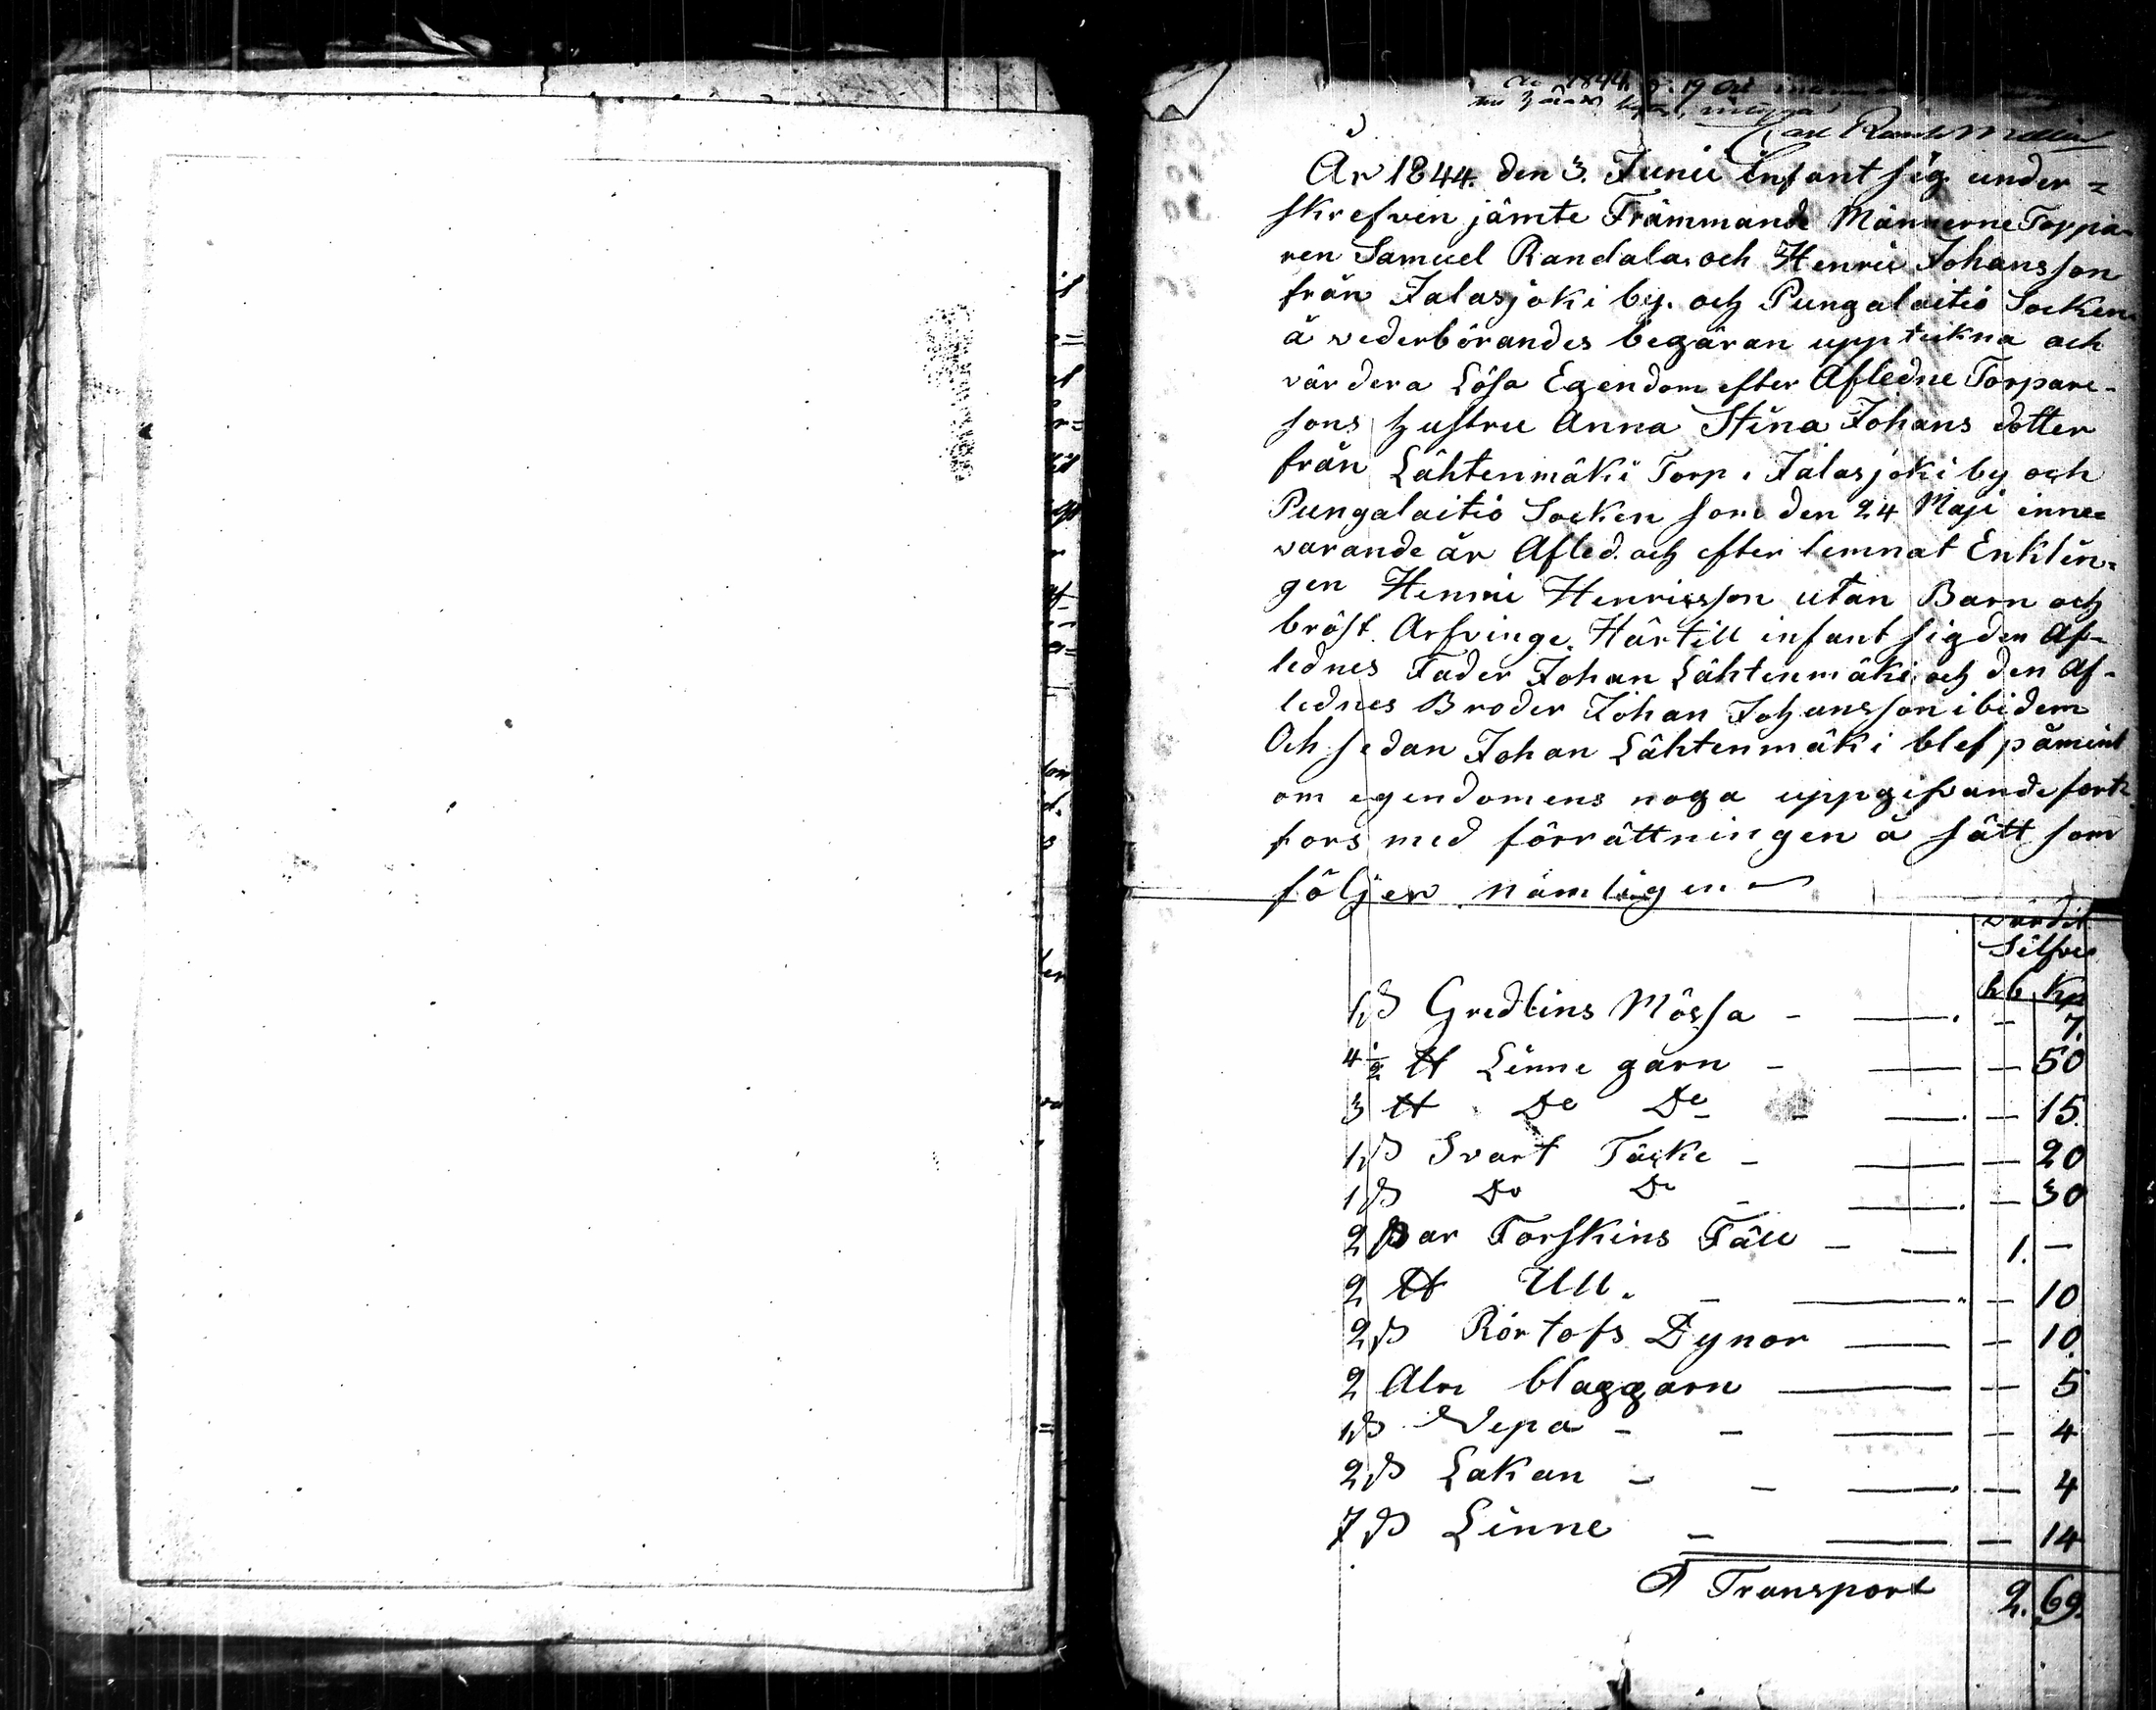 Ao 1844. d: 19 Oct
Carl
År 1844. den 3. Junii Infant sig under=
skrefven jämte Främmande Männerne Torppa=
ren Samuel Randala och Henric Johansson
från Jalasjoki by. och Pungalaitio Socken
å vederbörandes begäran upptekna och
värdera Lösa Egendom efter Afledne Torpare-
sons hustru Anna Stina Johans dotter
från Lähtenmäki Torp. Jalasjoki by och
Pungalaitio Socken som den 24 Maji inne=
varande år Afled. och efter lemnat Enklin=
gen Henric Henricsson utan Barn och
bröst. Arfvinge. Härtill infant sig den Af-
lednes Fader Johan Lähtenmäki och den af-
lednes Broder Johan Johansson ibidem
Och sedan Johan Lähtenmäki blef påmint
om egendomens noga uppgifvande fort=
fors med förrättningen å sätt som
följer nämligen
värdit
Silfver
Rb Kp
1 ß Gredlins Mössa - — — 7.
4 1/2 tt Linne garn - — — 50
3 tt Do Do - — — 15.
1 ß Svart Täcke - — — 20
1 ß Do Do - — — 30
2 Par Forskins Fäll - — 1. —
2 tt Ull. - — — 10
2 ß Rörtofs Dynor — — 10.
2 Alr blaggarn — — 5
1 ß Vepa - - — — 4
2 ß Lakan - - — — 4
7 ß Linne - — — 14
Transport 2. 69.